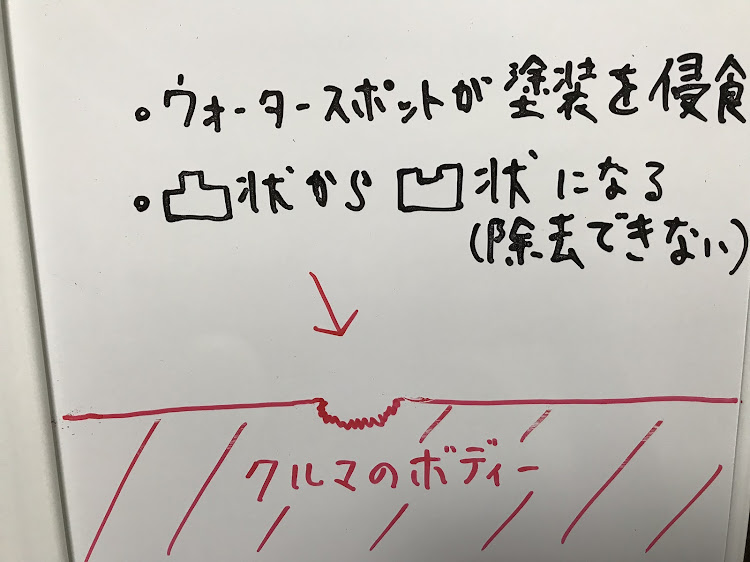 。ウォータースポットが塗装を侵食
。凸状から凹状になる
(除去できない)
クルマのボディー